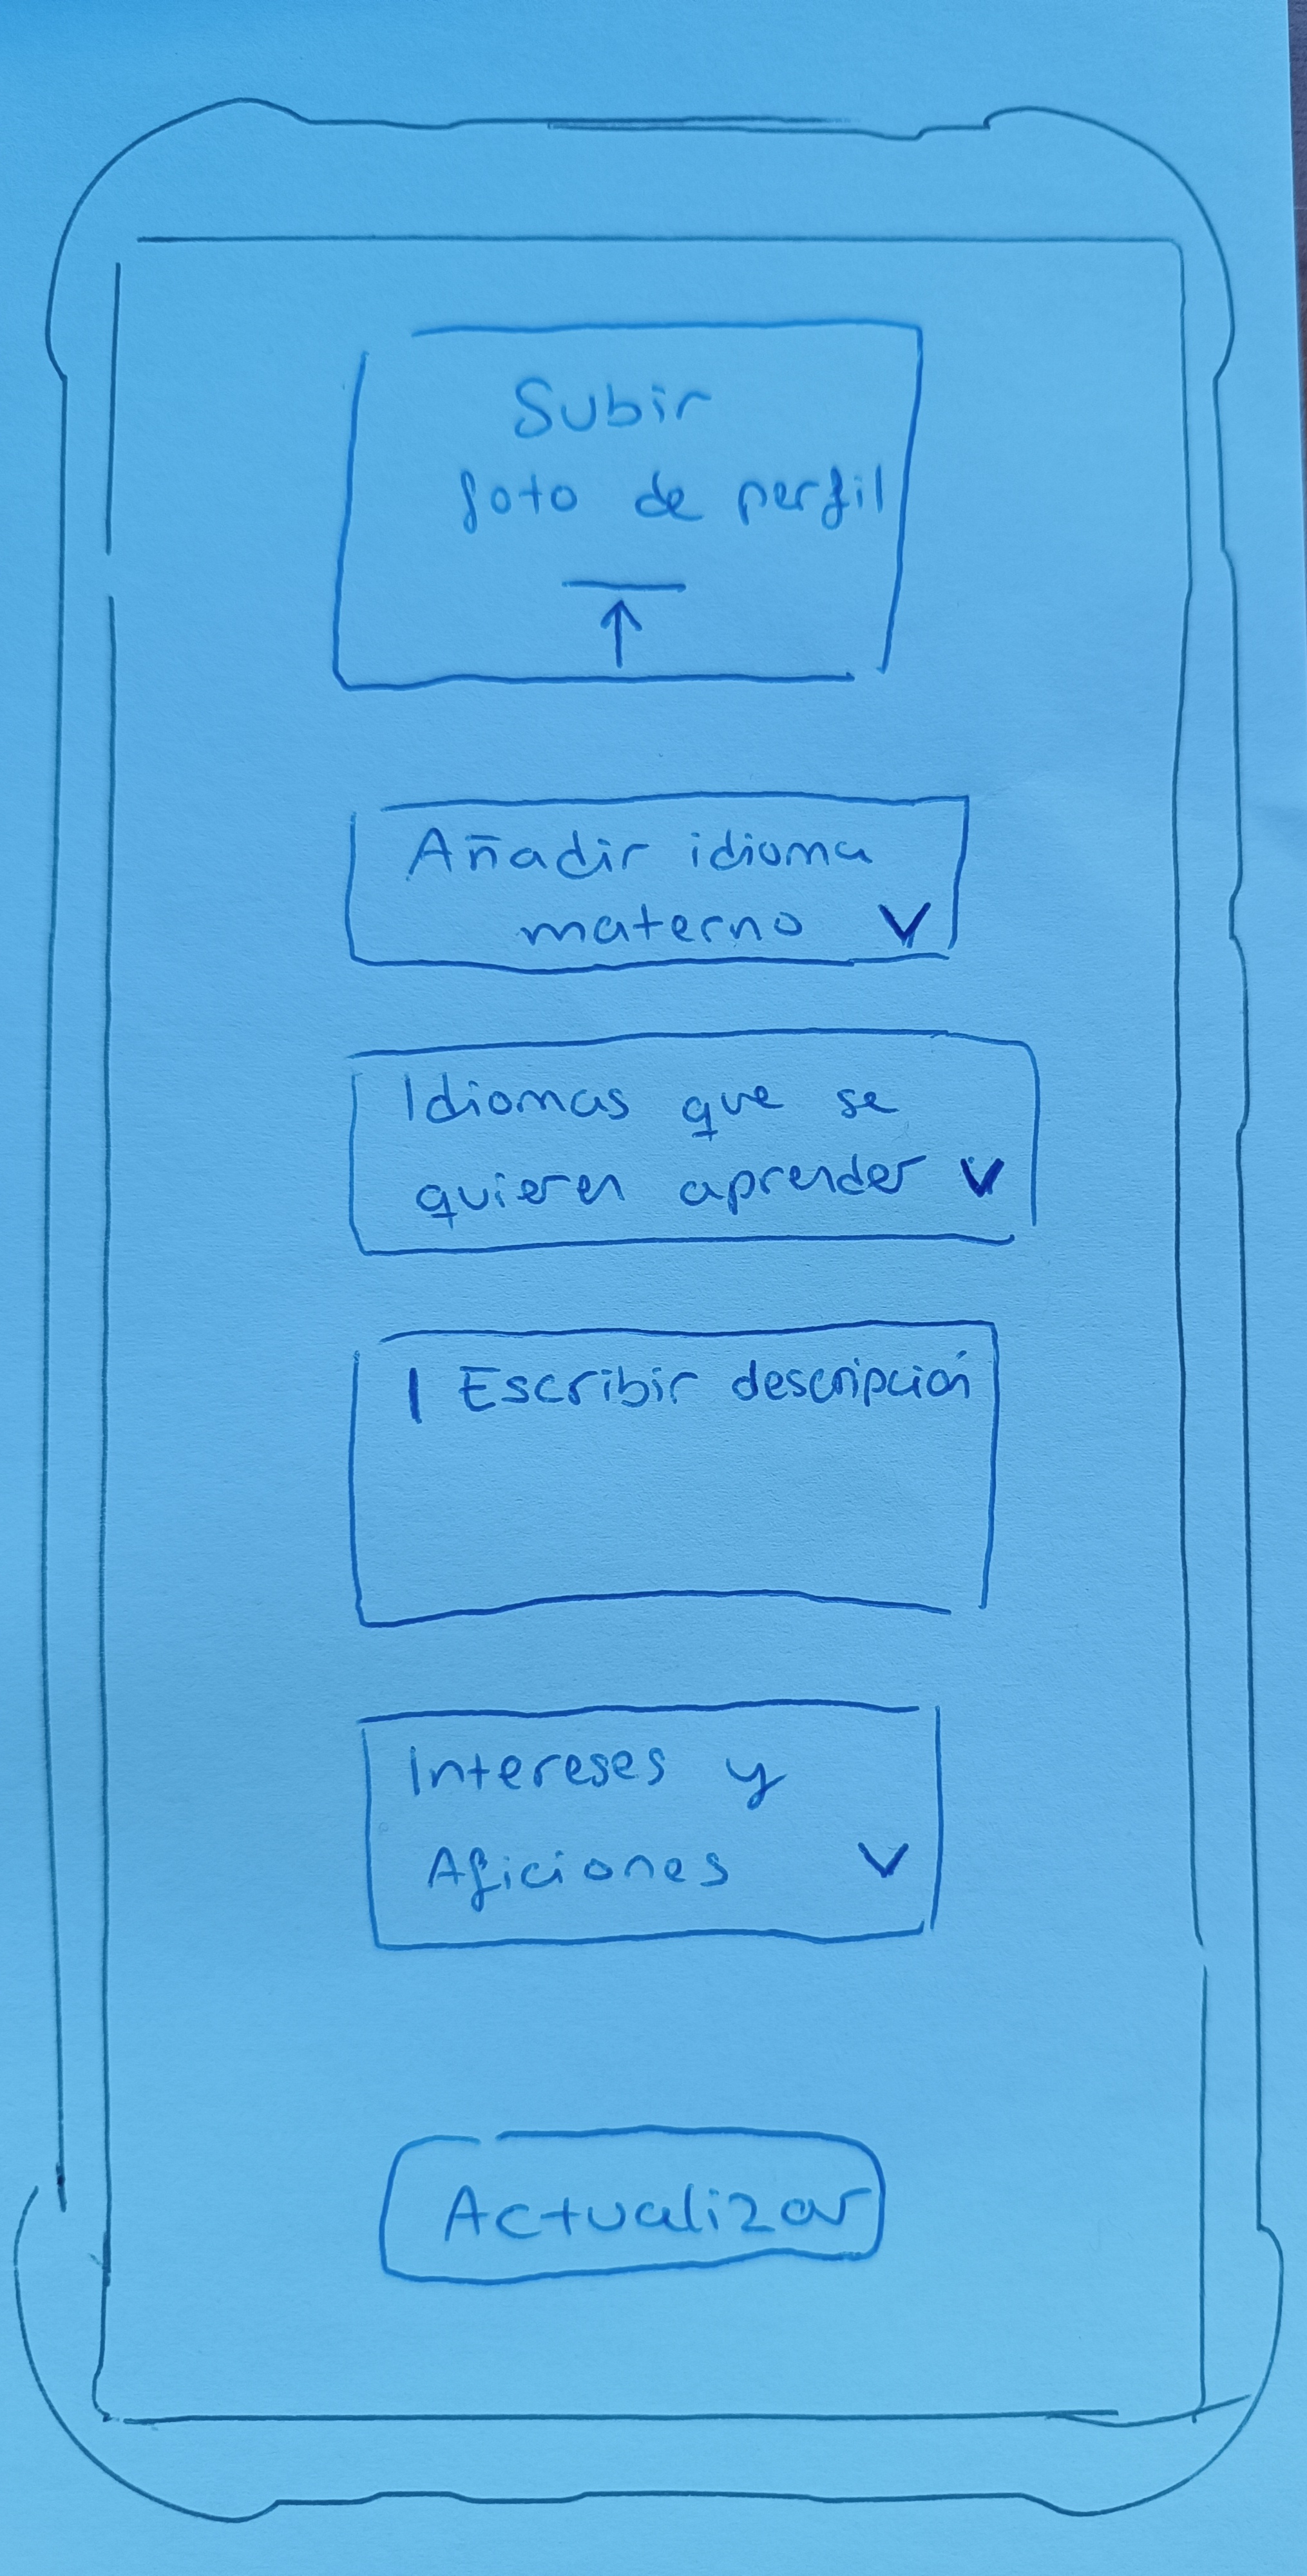 Subir
foto de perfil
Añadir idioma
materno
Idiomas que se
quieren aprender
Escribir descripción
Intereses y
Aficiones
Actualizar